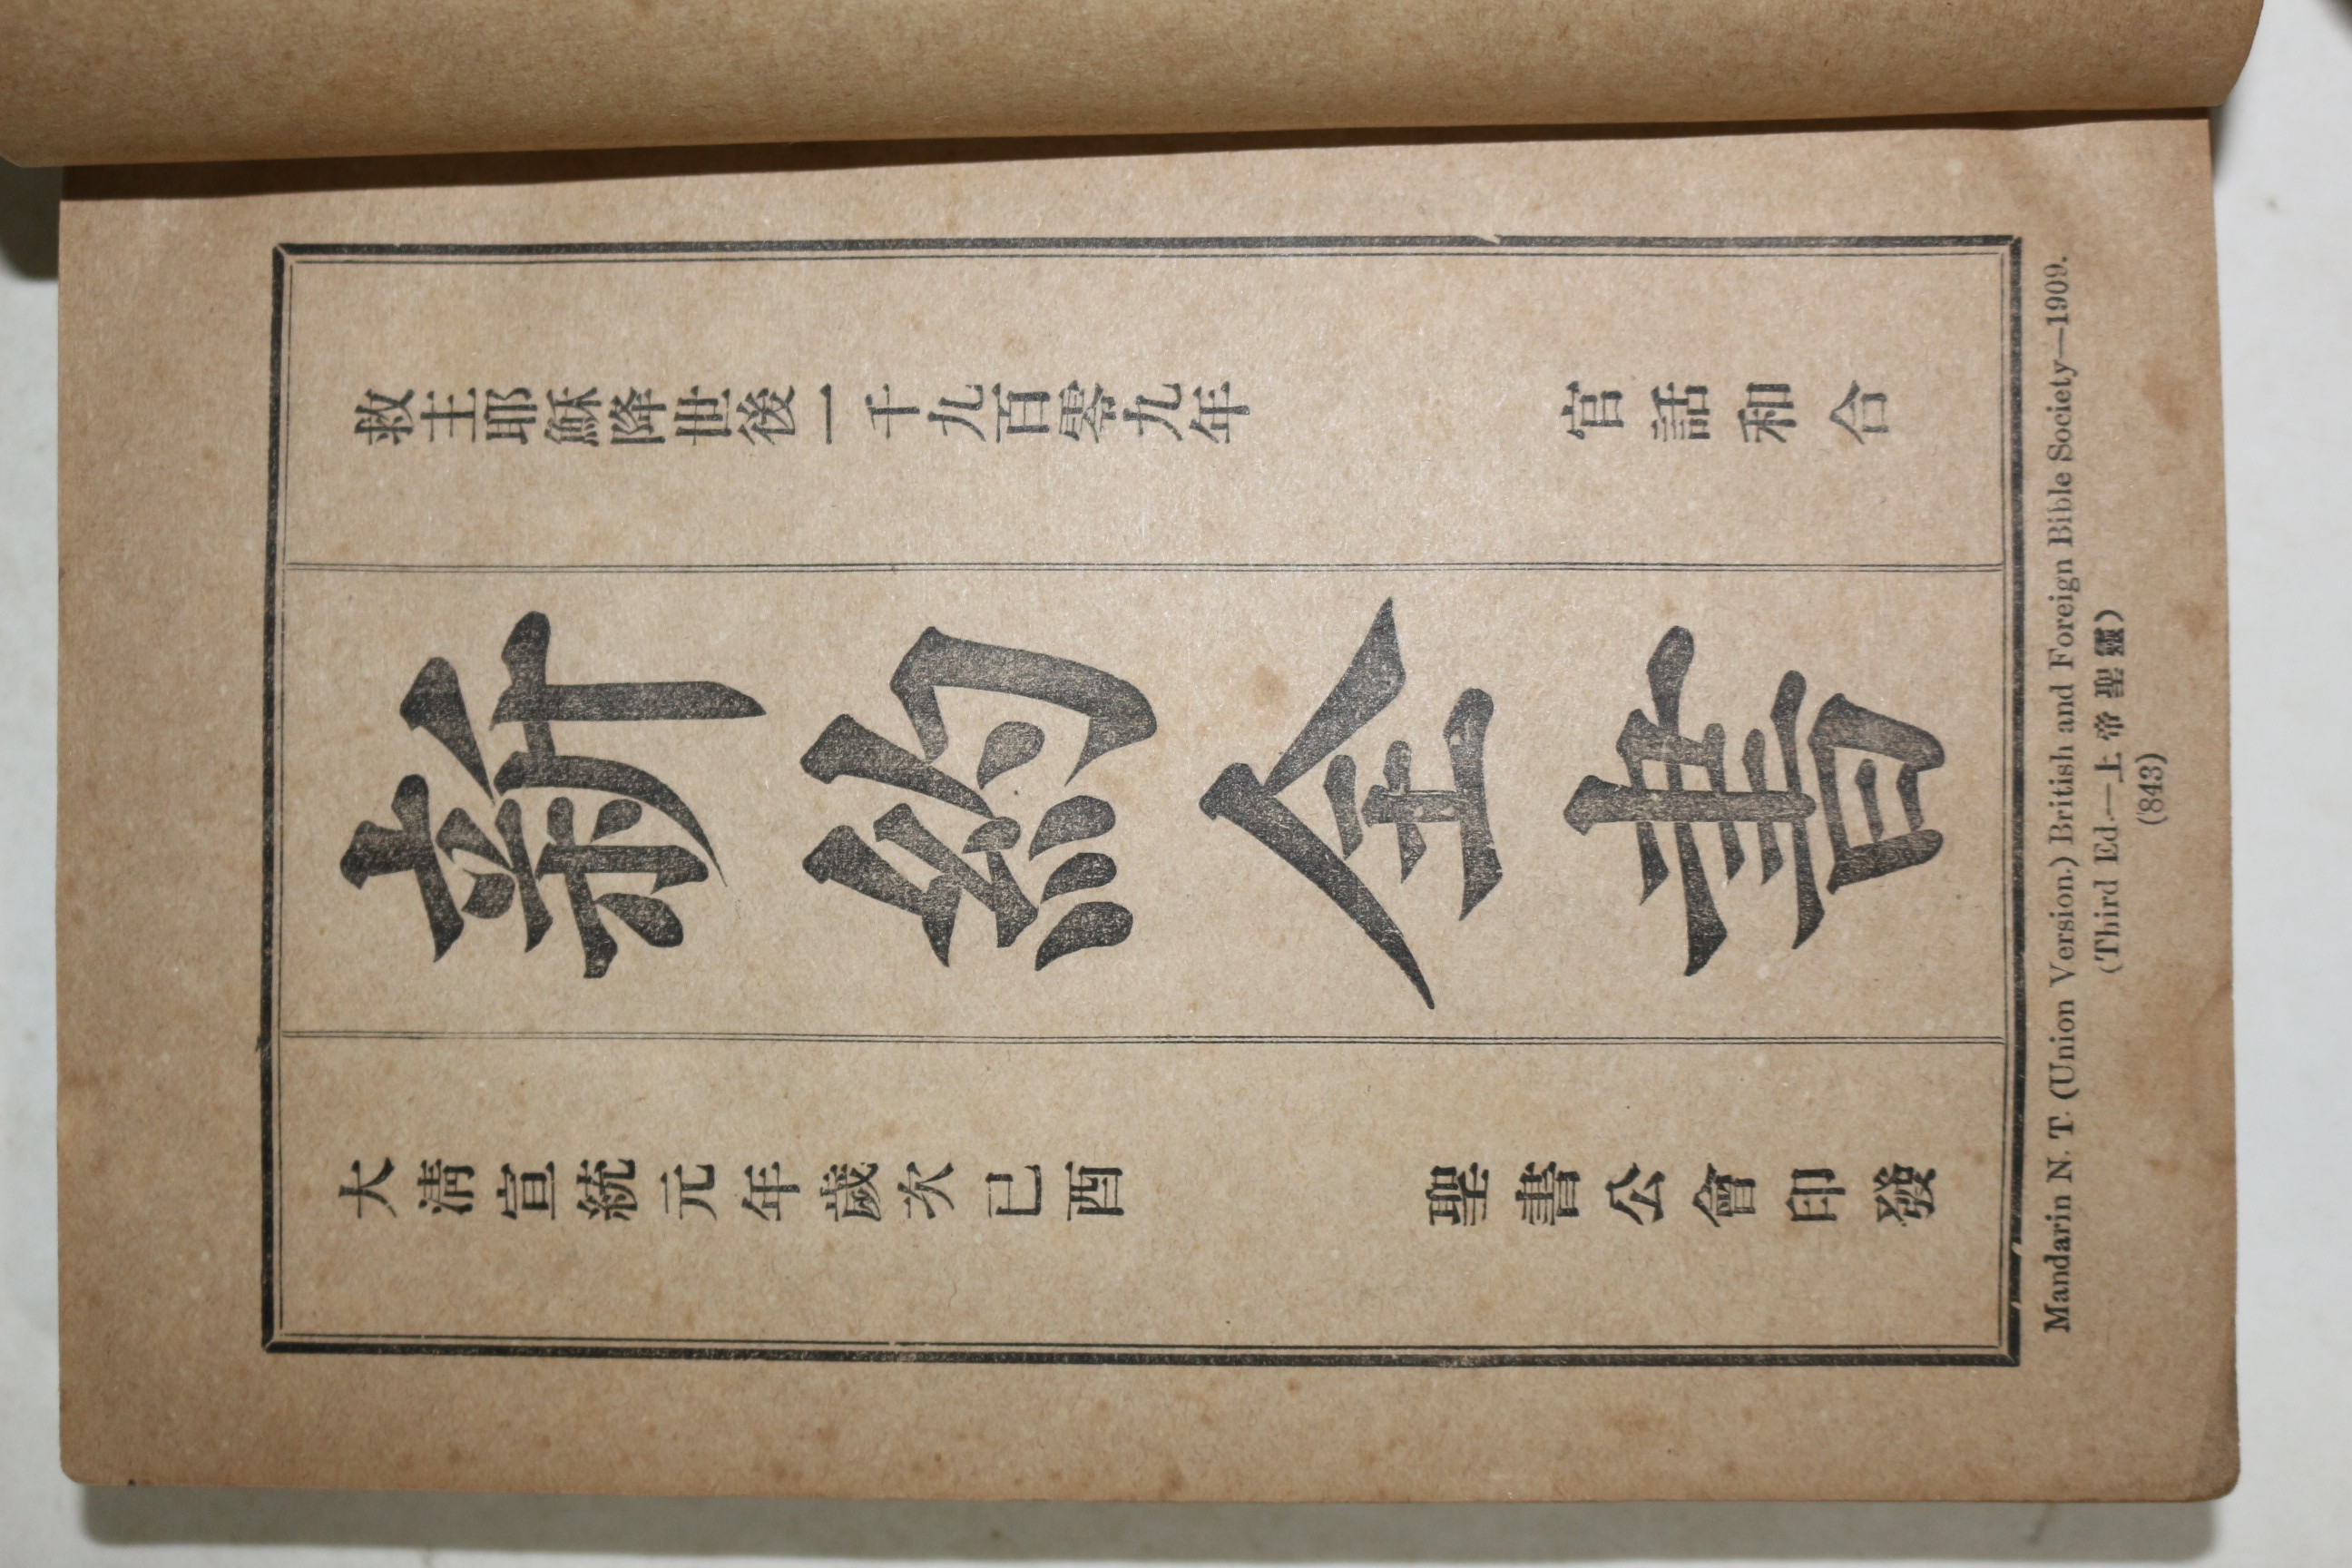 救主耶穌降世後一千九百零九年
官話和合
新約全書
大淸宣統元年歲次已酉
聖書公會印發
Mandarin N. T. (Union Version.) British and Foreign Bible Society—1909.
(Third Ed.—上帝聖靈)
(843)